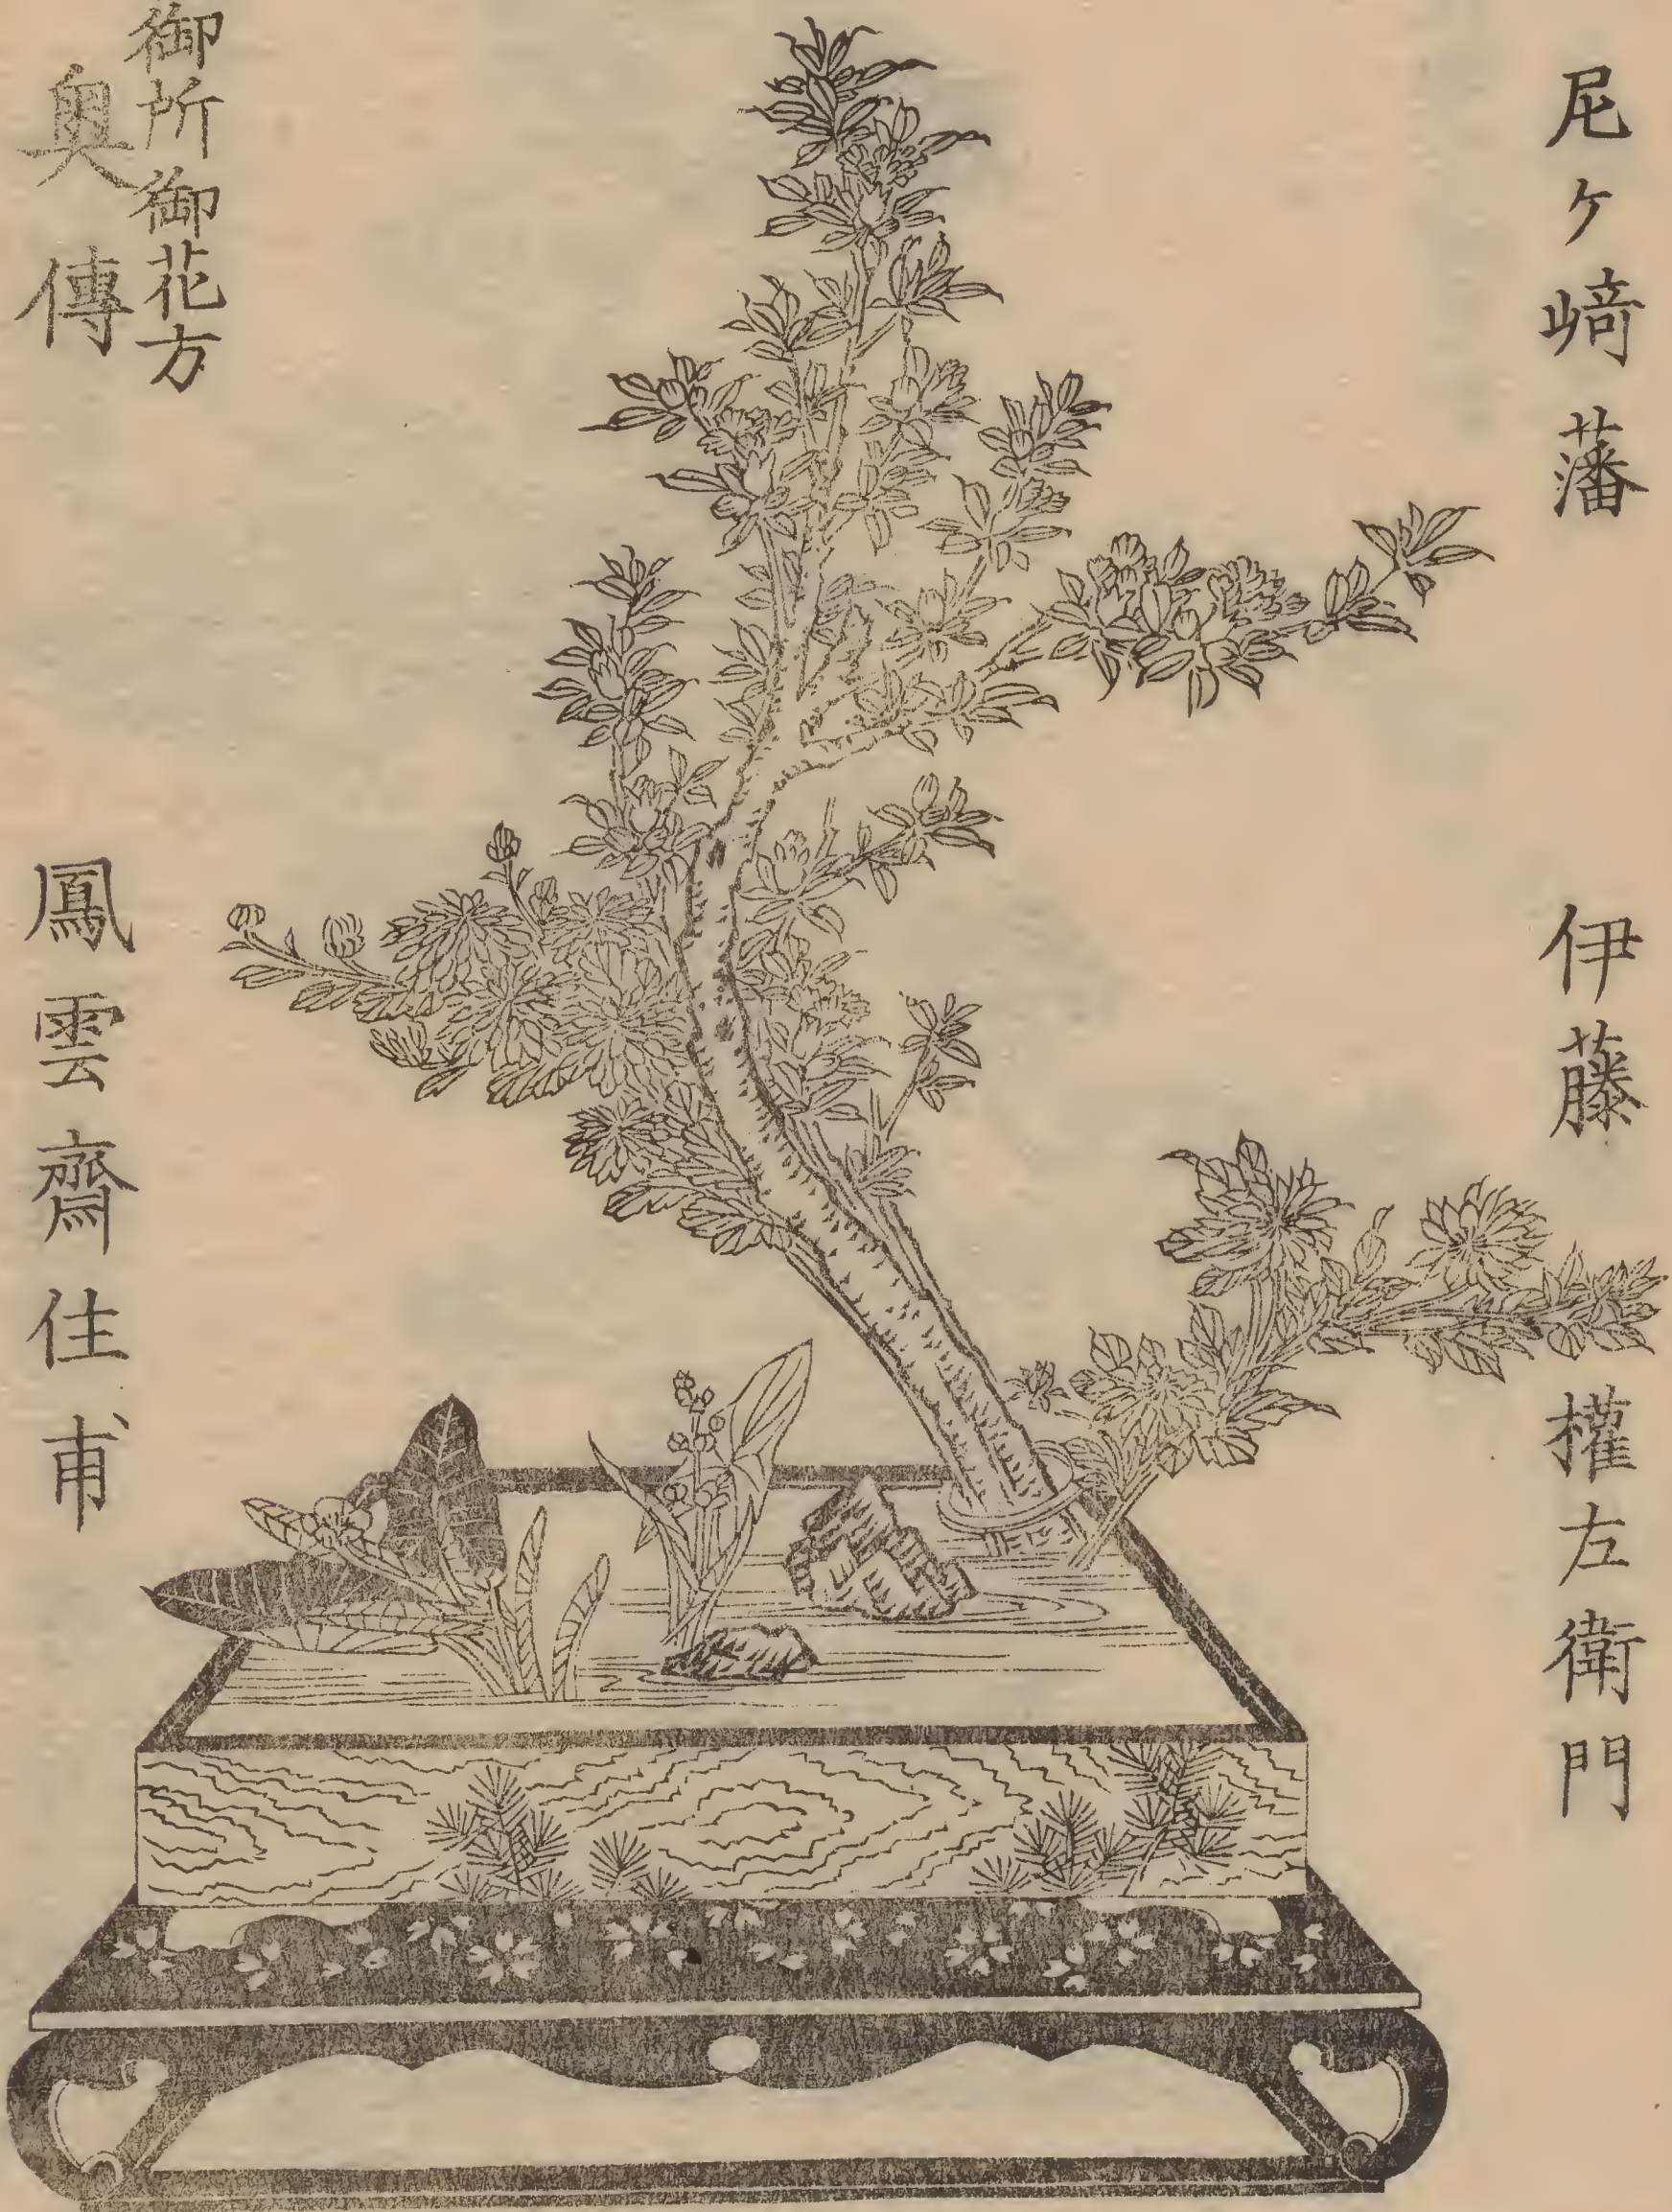 尼ヶ﨑藩
伊藤權左衛門
御所御花方
奥傳
鳳雲齋住甫